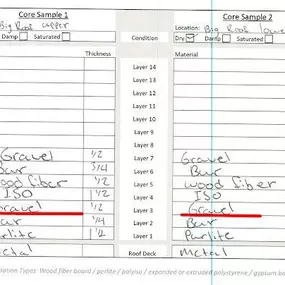 Core Sample 1 Core Sample 2
Big Roof upper Location: Big Roof lowe
Damp Saturated Condition Dry Damp Saturated
Thickness Material
Layer 14
Layer 13
Layer 12
Layer 11
Layer 10
Layer 9
Layer 8
Gravel 1/2 Layer 7 Gravel
Bur 3/4 Layer 6 Bur
wood fiber 1/2 Layer 5 wood fiber
ISO 1 1/2 Layer 4 ISO
Gravel 1/2 Layer 3 Gravel
Bur 3/4 Layer 2 Bur
rlite 1 1/2 Layer 1 Purlite
etal Roof Deck metal
ulation Types: Wood fiber board / perlite / polyiso / expanded or extruded polystyrene / gypsum bo